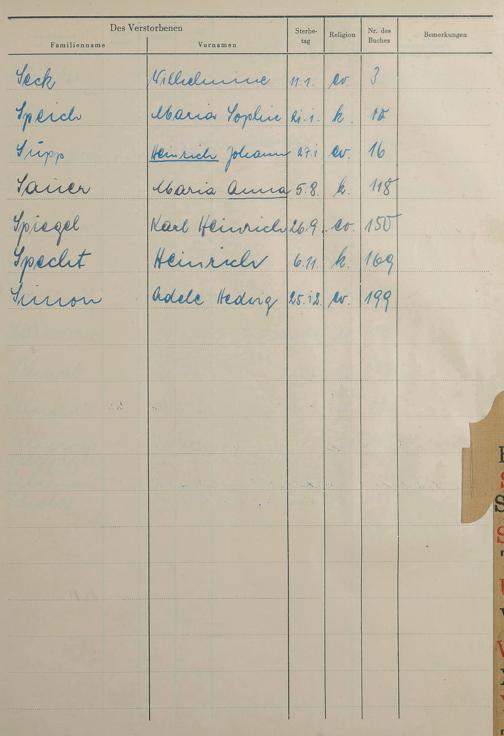 Des Verstorbenen
Familienname Vornamen Sterbe-tag Religion Nr. des Buches Bemerkungen
Seck Wilhelmine 11.1. ev. 3
Speich Maria Sophie 21.1. k. 10
Supp Heinrich Johann 27.1 ev. 16
Sauer Maria Anna 5.8. k. 118
Spiegel Karl Heinrich 26.9. ev. 150
Specht Heinrich 6.11. k. 169
Simon Adele Hedwig 25.12. ev. 199